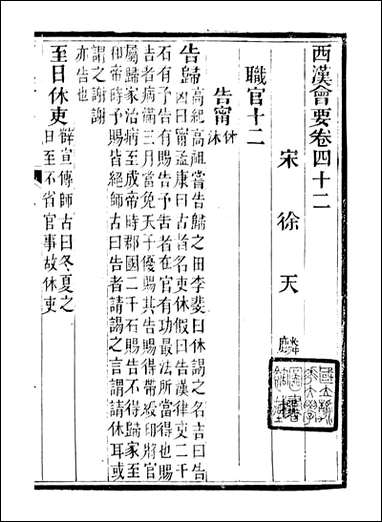 西漢會要卷四十二
宋徐天麟
職官十二
告甯休沐
告歸高紀高祖嘗告歸之田李斐曰休謁之名吉曰告
凶曰甯孟康曰古者名吏休假曰告漢律吏二千
石有予告有賜告予告者在官有功最法所當得也賜
告者病滿三月當免天子優賜其告賜得帶綬印將官
屬歸家治病至成帝時郡國二千石賜告不得歸家至
和帝時予賜皆絕師古曰告者請謁之言謂請休耳或
謂之謝謝
亦告也
至日休吏薛宣傳師古曰冬夏之
日至不省官事故休吏